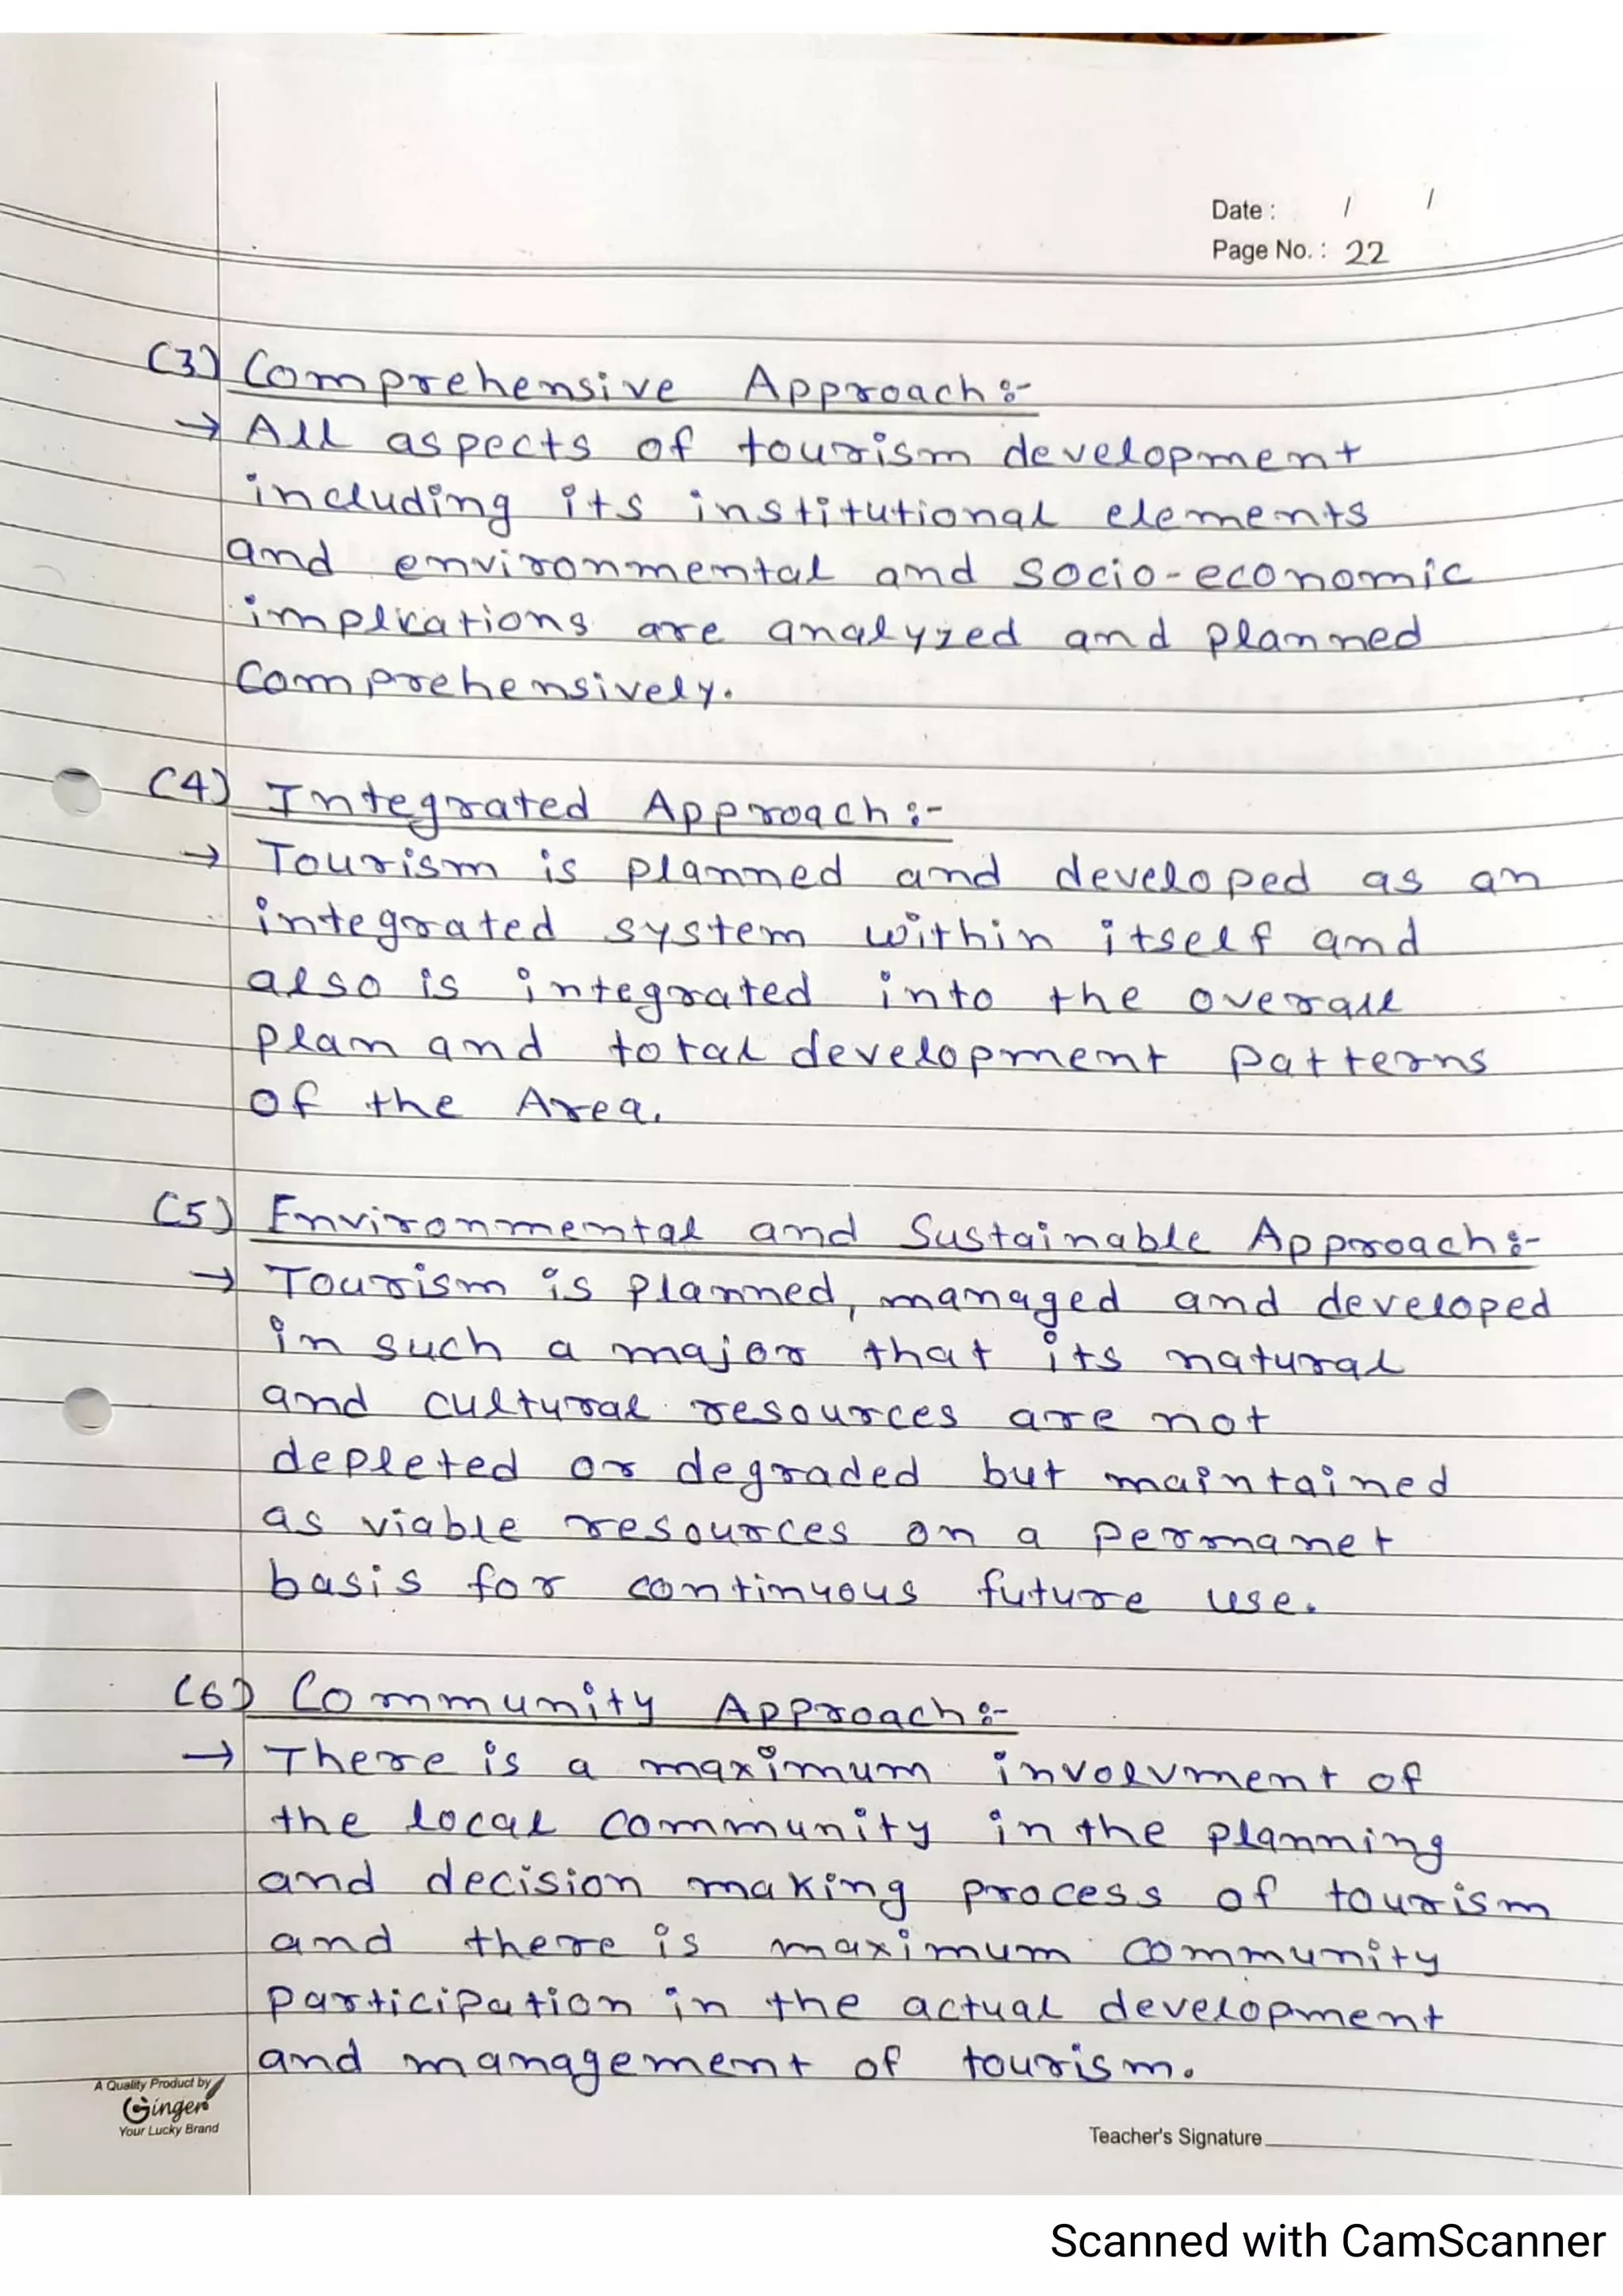 Date : / /
Page No. : 22
(3) Comprehensive Approach :-
→ All aspects of tourism development
including its institutional elements
and environmental and socio-economic
implications are analyzed and planned
comprehensively.
(4) Integrated Approach :-
→ Tourism is planned and developed as an
integrated system within itself and
also is integrated into the overall
plan and total development patterns
of the Area.
(5) Environmental and Sustainable Approach :-
→ Tourism is planned, managed and developed
in such a major that its natural
and cultural resources are not
depleted or degraded but maintained
as viable resources on a permanet
basis for continuous future use.
(6) Community Approach :-
→ There is a maximum involvment of
the local community in the planning
and decision making process of tourism
and there is maximum community
participation in the actual development
and management of tourism.
A Quality Product by
Ginger
Your Lucky Brand
Teacher's Signature
Scanned with CamScanner